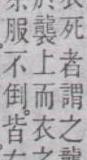 死者謂之
襲上而衣
服不倒皆